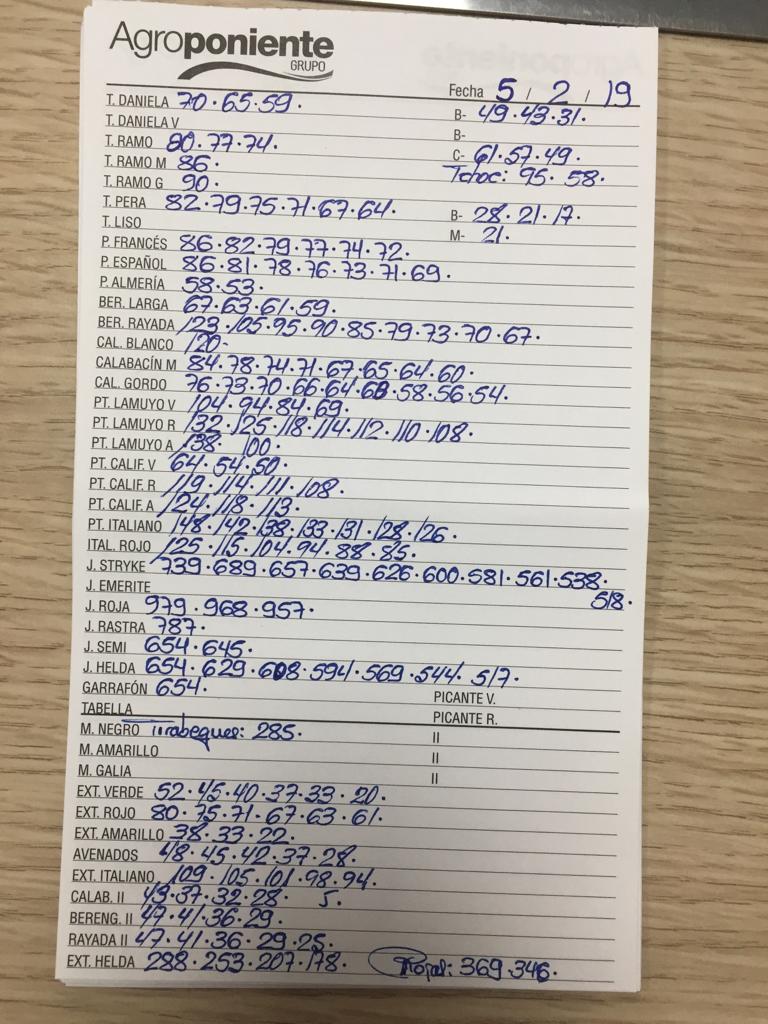 Agroponiente
GRUPO
Fecha 5 / 2 / 19
T. DANIELA 70.65.59. B- 49.43.31.
T. DANIELA V B-
T. RAMO 80.77.74. C- 61.57.49.
T. RAMO M 86. Tchoc: 95.58.
T. RAMO G 90.
T. PERA 82.79.75.71.67.64. B- 28.21.17.
T. LISO M- 21.
P. FRANCÉS 86.82.79.77.74.72.
P. ESPAÑOL 86.81.78.76.73.71.69.
P. ALMERÍA 58.53.
BER. LARGA 67.63.61.59.
BER. RAYADA 123.105.95.90.85.79.73.70.67.
CAL. BLANCO 120-
CALABACÍN M 84.78.74.71.67.65.64.60.
CAL. GORDO 76.73.70.66.64.60.58.56.54.
PT. LAMUYO V 104.94.84.69.
PT. LAMUYO R 132.125.118.114.112.110.108.
PT. LAMUYO A 138 100.
PT. CALIF. V 64.54.50.
PT. CALIF. R 119.114.111.108.
PT. CALIF. A 124.118.113.
PT. ITALIANO 148.142.138.133.131.128.126.
ITAL. ROJO 125.115.104.94.88.85.
J. STRYKE 739.689.657.639.626.600.581.561.538.
J. EMERITE 518.
J. ROJA 979.968.957.
J. RASTRA 787.
J. SEMI 654.645.
J. HELDA 654.629.608.594.569.544.517.
GARRAFÓN 654. PICANTE V.
TABELLA PICANTE R.
M. NEGRO Tirabeques: 285. II
M. AMARILLO II
M. GALIA II
EXT. VERDE 52.45.40.37.33.20.
EXT. ROJO 80.75.71.67.63.61.
EXT. AMARILLO 38.33.22.
AVENADOS 48.45.42.37.28.
EXT. ITALIANO 109.105.101.98.94.
CALAB. II 43.37.32.28. 5.
BERENG. II 47.41.36.29.
RAYADA II 47.41.36.29.25.
EXT. HELDA 288.253.207.178. 369.346.